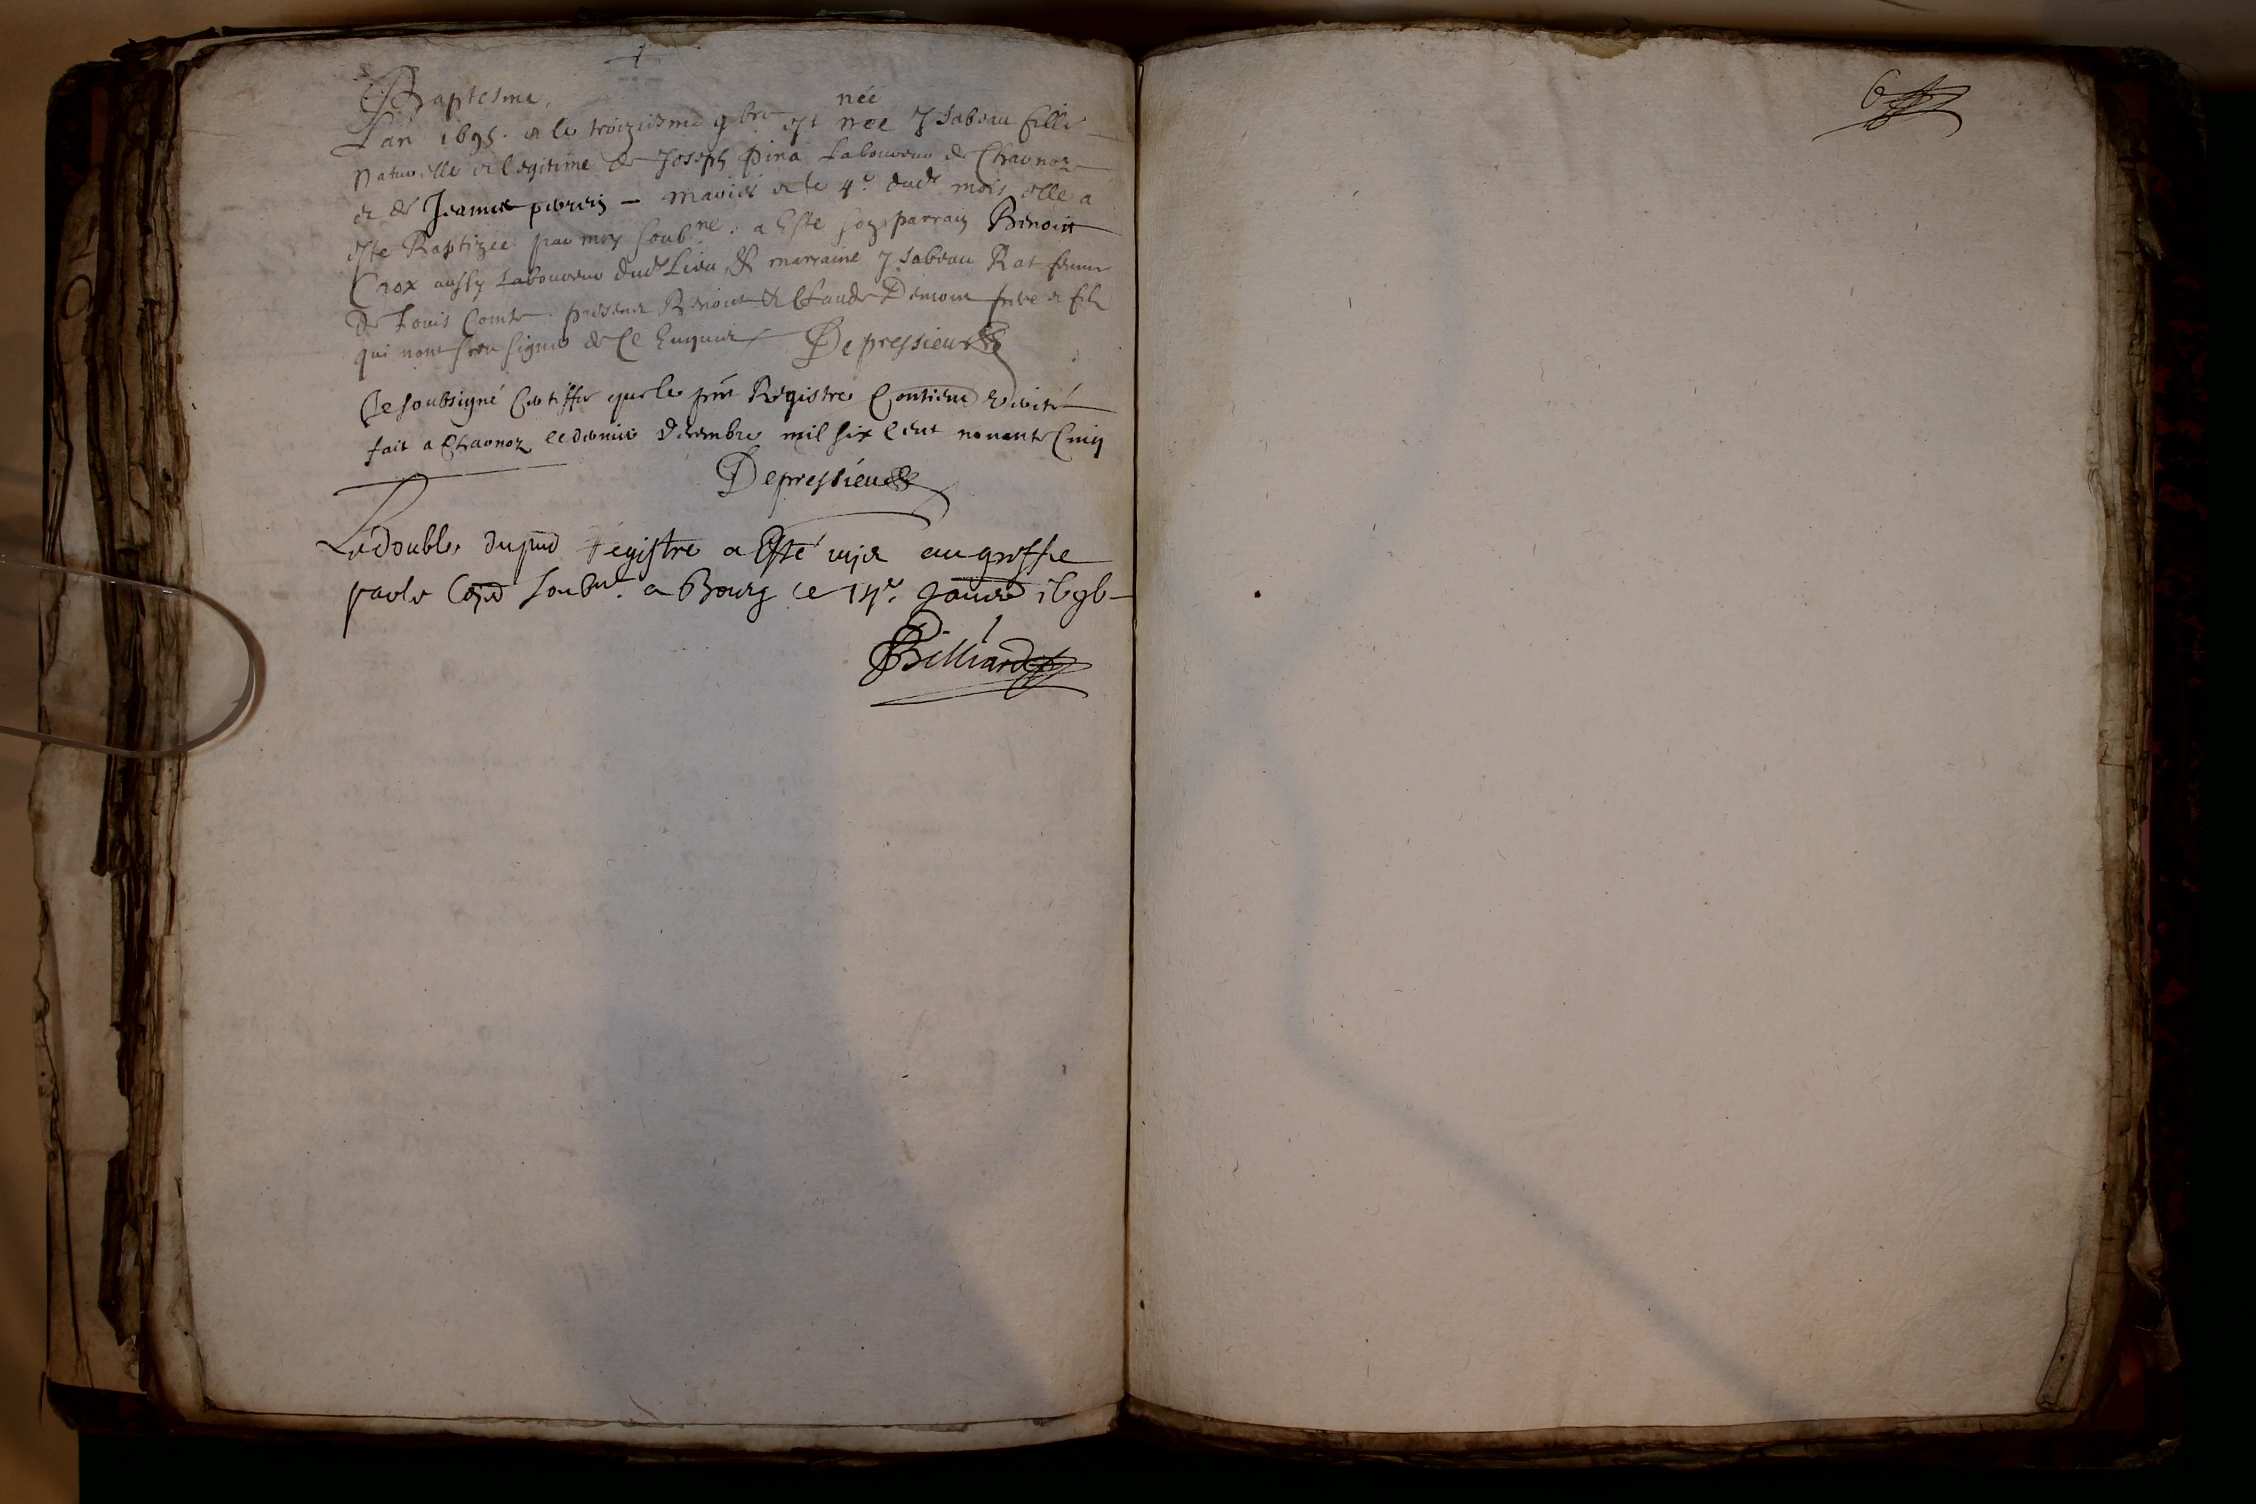 Baptesme.
née
L'an 1695. et le troizuisme 9bre est née Ysabeau fille
naturelle et legitime de Joseph Pina Laboureur de Chavnoz
et de Jeanne perrin mariés et le 4e dudt mois elle a
este Baptizée par moy soubne. a Este son parrain Benoist
Crox aussy Laboureur dudt Lieu & marraine Ysabeau Rat femme
de Louis Comte presens Benoist & Claude frere et fils
qui nont sceu signer de ce Enquis Depressieu
Je soubsigné Certiffie que le pnt Registre Contient verité
fait a Chavnoz le dernier decembre mil six cent nonante Cinq
Depressieu
Le double du pnt registre a Esté mis au greffe
par le soubne. a Bourg ce 14e. Janvier 1696
Billiard
6